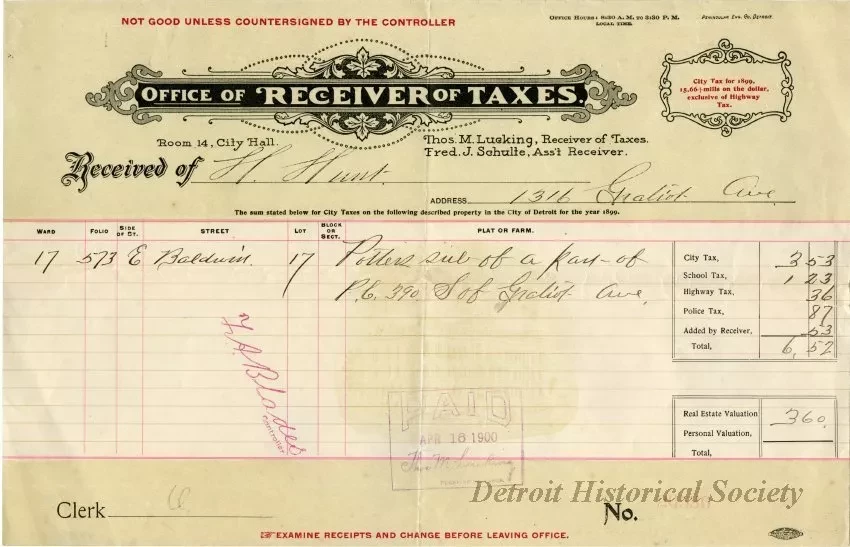 NOT GOOD UNLESS COUNTERSIGNED BY THE CONTROLLER
OFFICE HOURS: 8:30 A. M. TO 3:30 P. M.
LOCAL TIME.
PENINSULAR ENG. CO. DETROIT.
OFFICE OF RECEIVER OF TAXES.
City Tax for 1899,
15,66½ mills on the dollar,
exclusive of Highway
Tax.
Room 14, City Hall.
Thos. M. Lucking, Receiver of Taxes.
Fred. J. Schulte, Ass't Receiver.
Received of H. Hunt.
ADDRESS 1316 Gratiot Ave
The sum stated below for City Taxes on the following described property in the City of Detroit for the year 1899.
WARD FOLIO SIDE OF ST. STREET LOT BLOCK OR SECT. PLAT OR FARM.
17 573 E Baldwin. 17 Potters sub of a part of
P.C. 390 S of Gratiot Ave.
City Tax, 3 53
School Tax, 1 23
Highway Tax, 36
Police Tax, 87
Added by Receiver, 53
Total, 6 52
F. A. Blades
controller
PAID
APR 16 1900
Thos M. Lucking
Real Estate Valuation 360
Personal Valuation,
Total,
Detroit Historical Society
Clerk
No.
EXAMINE RECEIPTS AND CHANGE BEFORE LEAVING OFFICE.